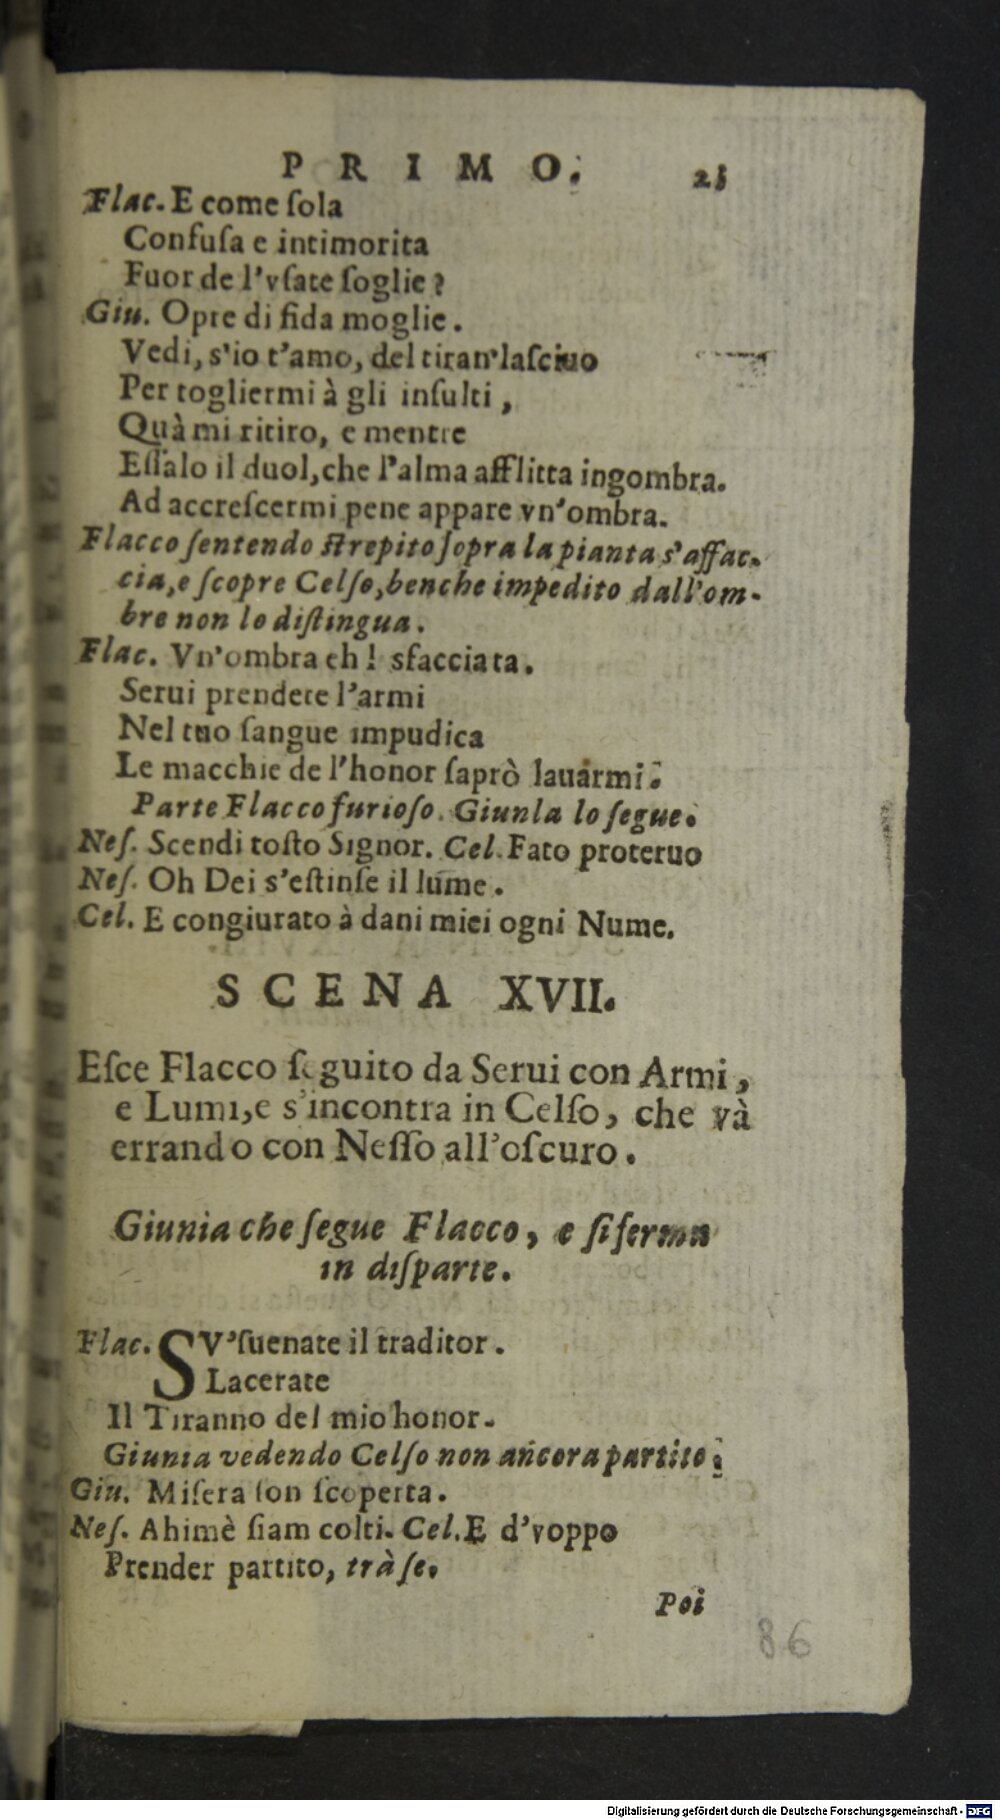 PRIMO. 25
Flac. E come ſola
Confuſa e intimorita
Fuor de l'vſate ſoglie?
Giu. Opre di fida moglie.
Vedi, s'io t'amo, del tiran'laſciuo
Per togliermi à gli inſulti,
Quà mi ritiro, e mentre
Eſſalo il duol, che l'alma afflitta ingombra.
Ad accreſcermi pene appare vn'ombra.
Flacco ſentendo ſtrepito ſopra la pianta s'affac-
cia, e ſcopre Celſo, benche impedito dall'om-
bre non lo diſtingua.
Flac. Vn'ombra eh! sfacciata.
Serui prendete l'armi
Nel tuo ſangue impudica
Le macchie de l'honor ſaprò lauarmi.
Parte Flacco furioſo. Giunla lo ſegue.
Neſ. Scendi toſto Signor. Cel. Fato proteruo
Neſ. Oh Dei s'eſtinſe il lume.
Cel. E congiurato à dani miei ogni Nume.
SCENA XVII.
Eſce Flacco ſeguito da Serui con Armi,
e Lumi, e s'incontra in Celſo, che và
errando con Neſſo all'oſcuro.
Giunia che ſegue Flacco, e ſi ferma
in diſparte.
Flac. SV'ſuenate il traditor.
Lacerate
Il Tiranno del mio honor.
Giunia vedendo Celſo non ancora partito.
Giu. Miſera ſon ſcoperta.
Neſ. Ahimè ſiam colti. Cel. E d'voppo
Prender partito, trà ſe.
Poi
86
Digitalisierung gefördert durch die Deutsche Forschungsgemeinschaft - DFG